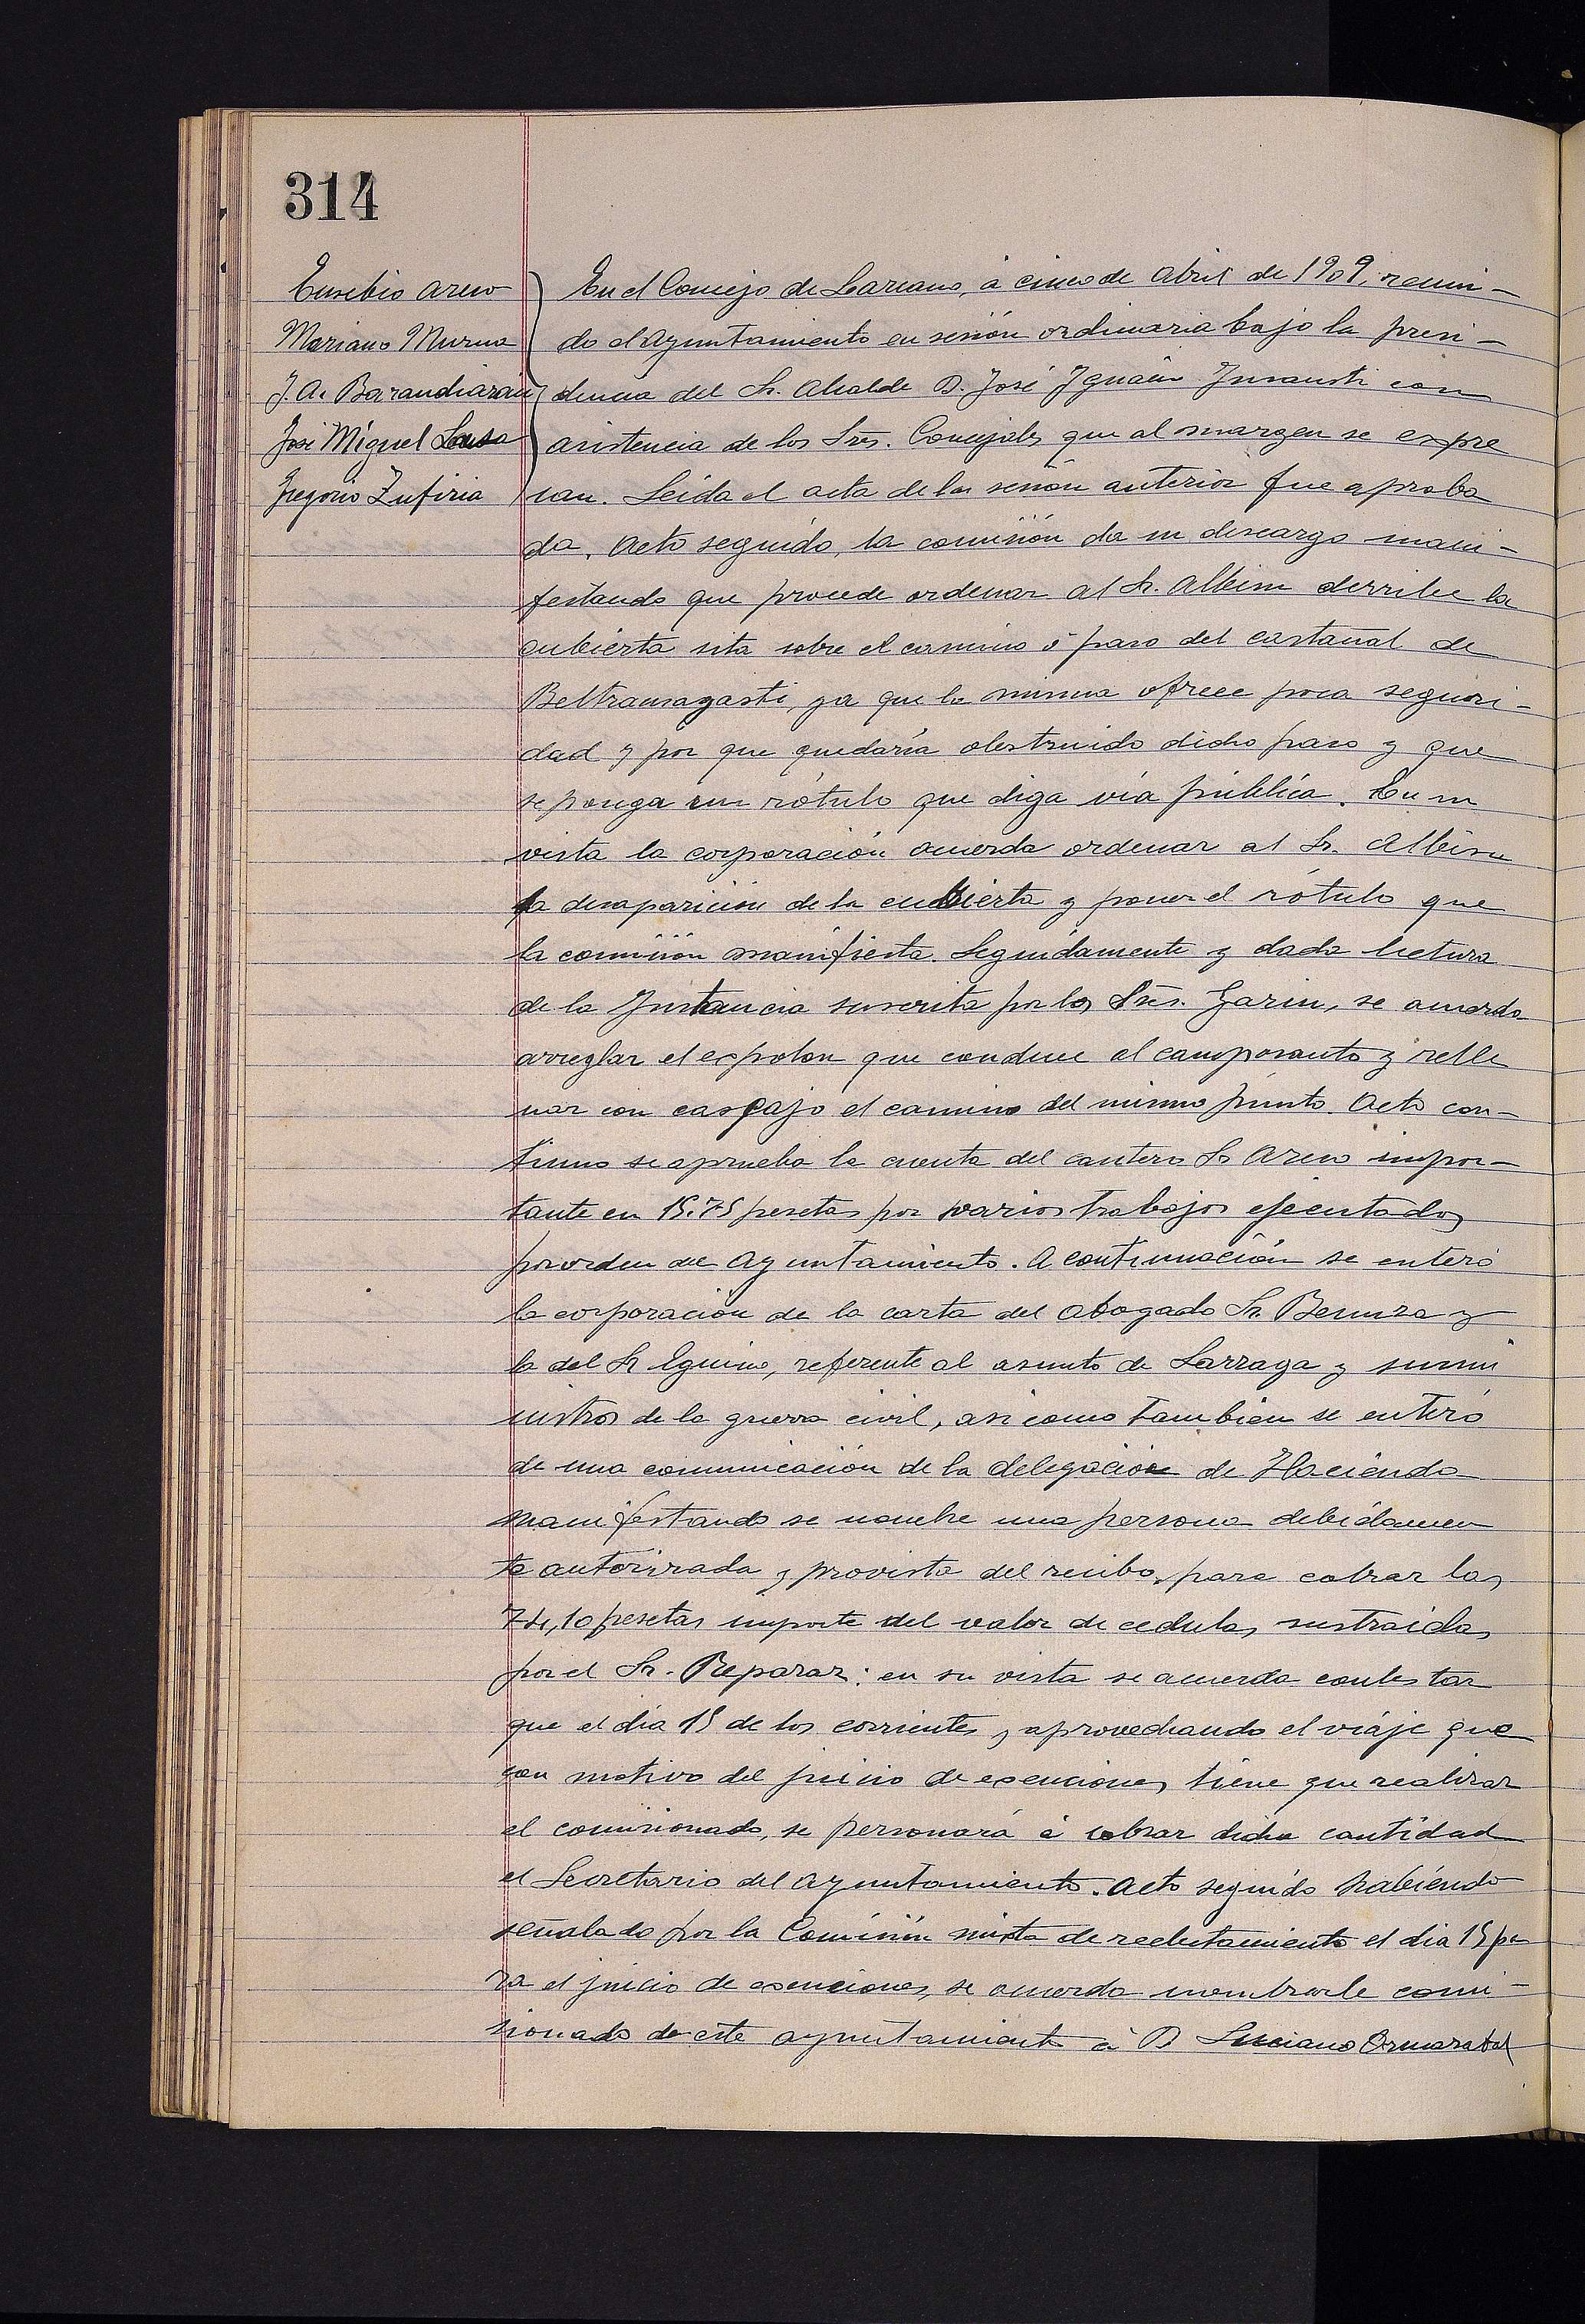 314
Eusebio Areso
Mariano Murua
J. A. Barandiarán
José Miguel Sousa
Gregorio Zufiria
En el Concejo de Lazcano, á cinco de Abril de 1909, reuni-
do el Ayuntamiento en sesión ordinaria bajo la presi-
dencia del Sr. Alcalde D. José Ygnacio Ynsausti con
asistencia de los Sres. Concejales que al margen se expre
san. Leida el acta de la sesión anterior fue aproba
da. Acto seguido, la comisión da su descargo mani-
festando que procede ordenar al Sr. Albisu derribe la
cubierta sita sobre el camino ó paso del castañal de
Beltransagasti, ya que la misma ofrece poca seguri-
dad y por que quedaría obstruido dicho paso y que
se ponga un rótulo que diga vía pública. En su
vista la corporación acuerda ordenar al Sr. Albisu
la desaparición de la cubierta y poner el rótulo que
la comisión manifiesta. Seguidamente y dada lectura
de la Ynstancia suscrita por los Sres. Garin, se acuerda
arreglar el espolon que conduce al camposanto y relle
nar con cascajo el camino del mismo punto. Acto con-
tinuo se aprueba la cuenta del cantero Sr Areso impor-
tante en 15.75 pesetas por varios trabajos ejecutados
por orden del Ayuntamiento. A continuación se enteró
la corporación de la carta del abogado Sr. Benunza y
la del Sr Eguino, referente al asunto de Larraga y sumi
nistros de la guerra civil, asi como tambien se enteró
de una comunicación de la delegación de Hacienda
manifestando se nombre una persona debidamen
te autorizada y provista del recibo, para cobrar las
74,10 pesetas importe del valor de cedulas sustraidas
por el Sr. Reparaz: en su vista se acuerda contestar
que el día 15 de los corrientes, aprovechando el viaje que
con motivo del juicio de exenciones tiene que realizar
el comisionado, se personará á cobrar dicha cantidad
el Secretario del Ayuntamiento. Acto seguido habiendo
señalado por la Comisión mixta de reclutamiento el dia 15 pa
ra el juicio de exenciones, se acuerda nombrarle comi-
sionado de este ayuntamiento á D Luciano Ormazabal